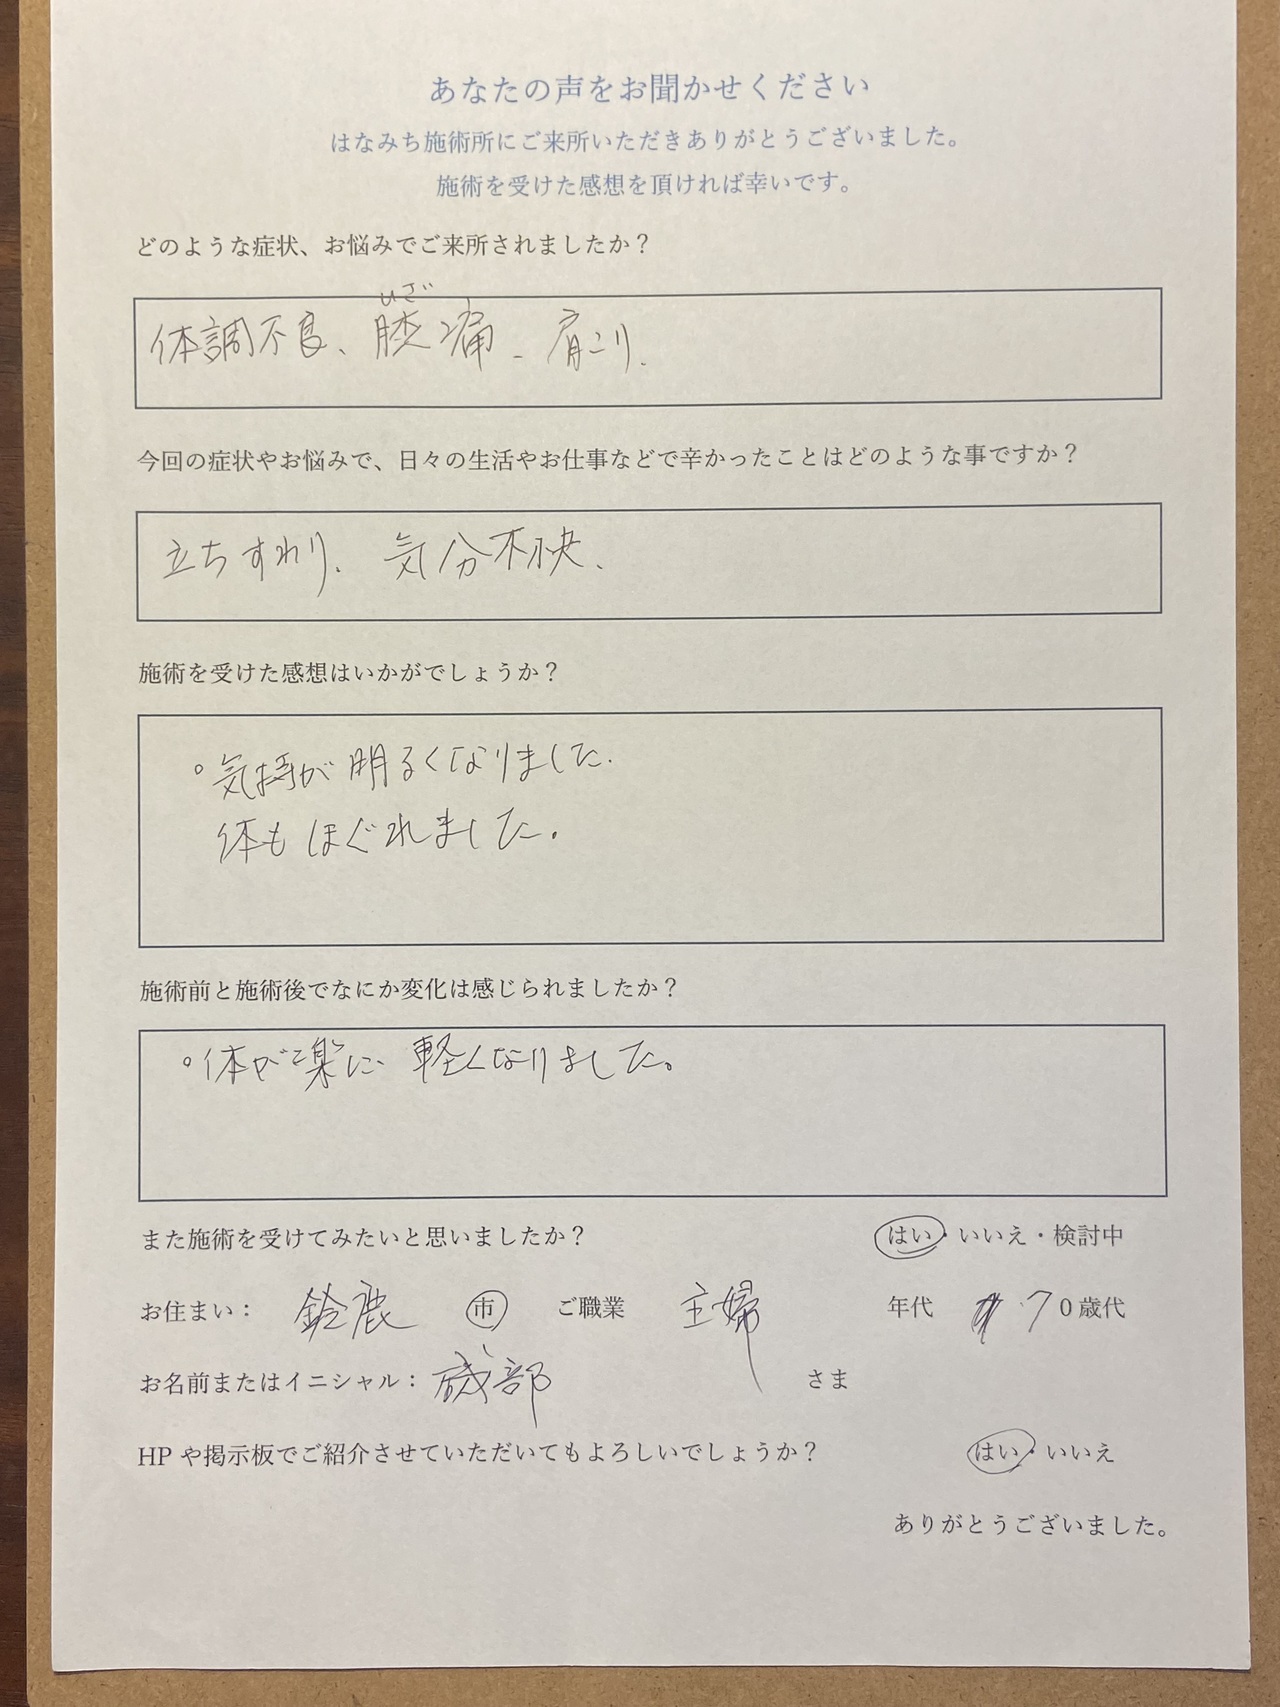 あなたの声をお聞かせください
はなみち施術所にご来所いただきありがとうございました。
施術を受けた感想を頂ければ幸いです。
どのような症状、お悩みでご来所されましたか？
ひざ
体調不良、膝痛、肩こり、
今回の症状やお悩みで、日々の生活やお仕事などで辛かったことはどのような事ですか？
立ちすわり、気分不快、
施術を受けた感想はいかがでしょうか？
○気持が明るくなりました.
体もほぐれました。
施術前と施術後でなにか変化は感じられましたか？
○体が楽に軽くなりました。
また施術を受けてみたいと思いましたか？ はい・いいえ・検討中
お住まい： 鈴鹿 市 ご職業 主婦 年代 70歳代
お名前またはイニシャル： 磯部 さま
HPや掲示板でご紹介させていただいてもよろしいでしょうか？ はい・いいえ
ありがとうございました。